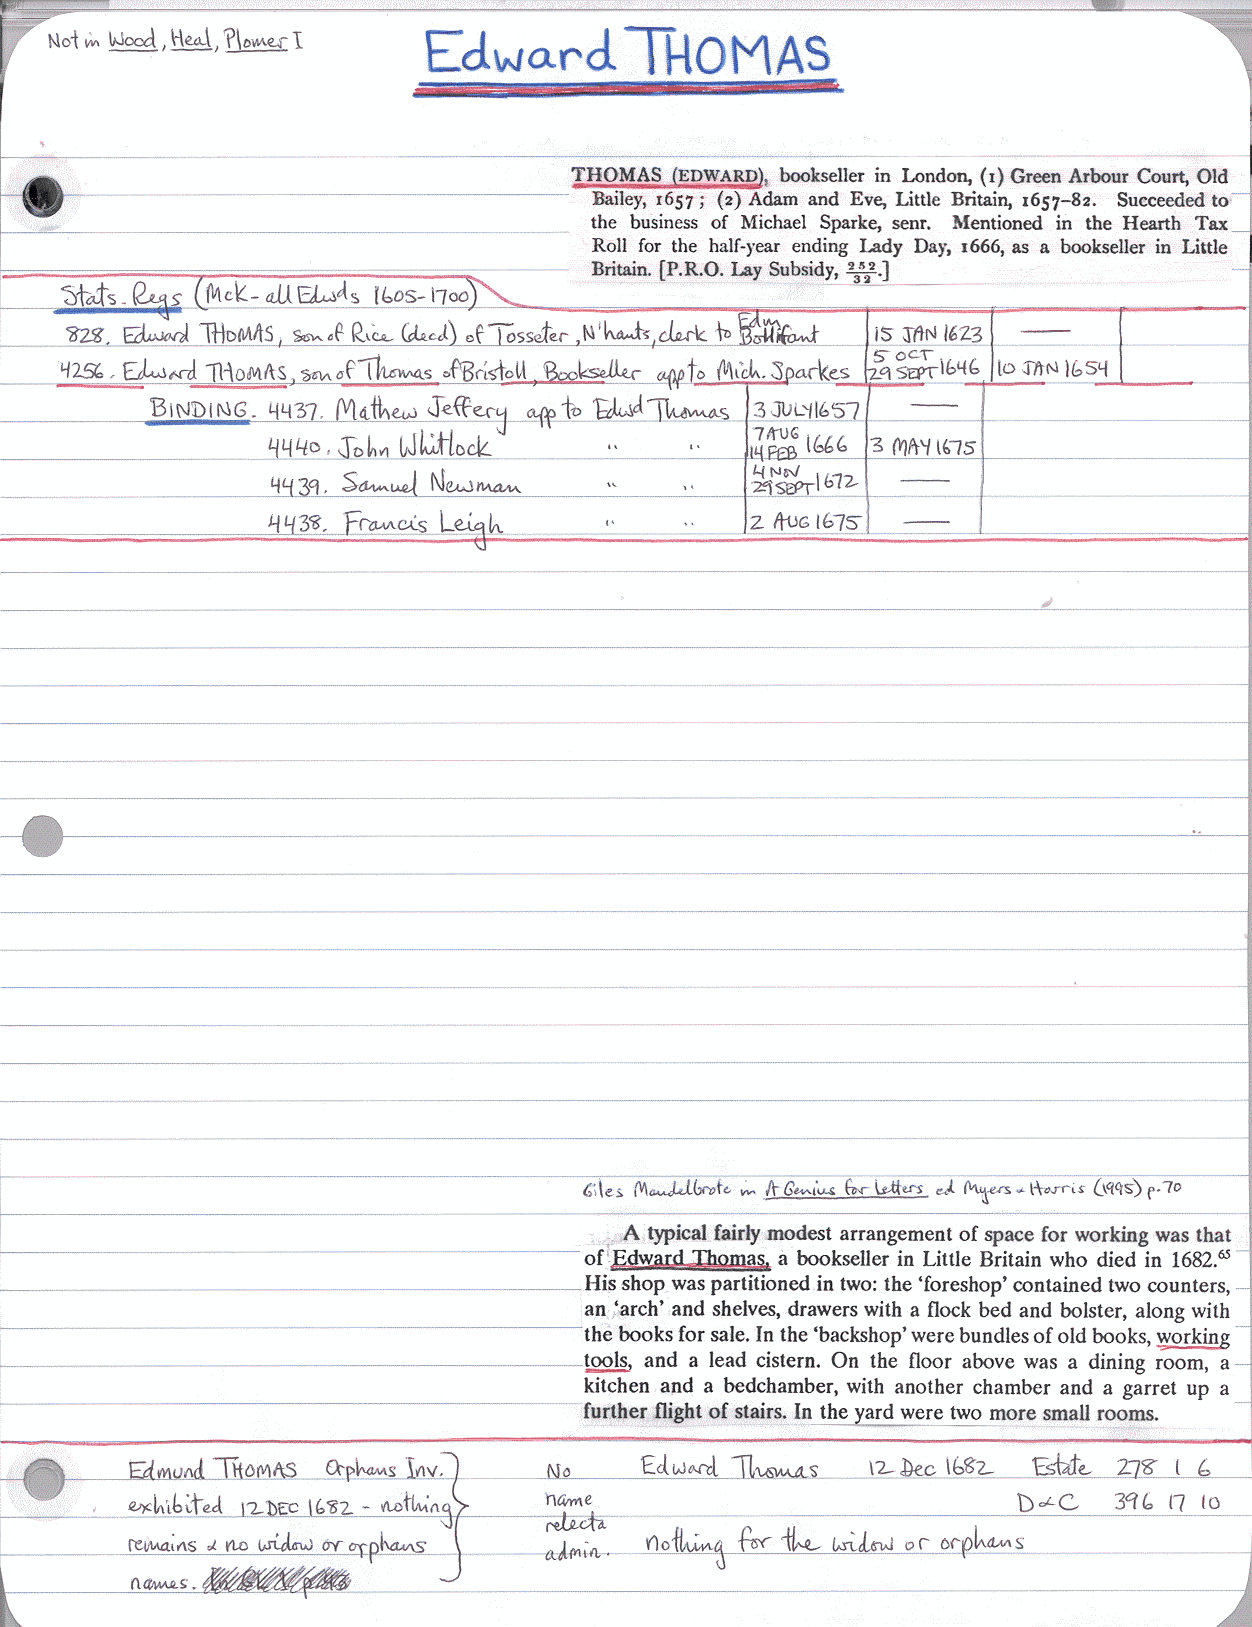 Not in Wood, Heal, Plomer I
Edward THOMAS
THOMAS (EDWARD), bookseller in London, (1) Green Arbour Court, Old
Bailey, 1657; (2) Adam and Eve, Little Britain, 1657–82. Succeeded to
the business of Michael Sparke, senr. Mentioned in the Hearth Tax
Roll for the half-year ending Lady Day, 1666, as a bookseller in Little
Britain. [P.R.O. Lay Subsidy, 252/32.]
Stats. Regs (McK – all Edwds 1605-1700)
828. Edward THOMAS, son of Rice (decd) of Tosseter, N'hants, clerk to Edm Bollifant 15 JAN 1623 —
4256. Edward THOMAS, son of Thomas of Bristoll, Bookseller app to Mich. Sparkes 5 OCT 29 SEPT 1646 10 JAN 1654
BINDING. 4437. Mathew Jeffery app to Edwd Thomas 3 JULY 1657 —
4440. John Whitlock " " 7 AUG 14 FEB 1666 3 MAY 1675
4439. Samuel Newman " " 4 NOV 29 SEPT 1672 —
4438. Francis Leigh " " 2 AUG 1675 —
Giles Mandelbrote in A Genius for Letters ed Myers & Harris (1995) p.70
A typical fairly modest arrangement of space for working was that
of Edward Thomas, a bookseller in Little Britain who died in 1682.65
His shop was partitioned in two: the ‘foreshop’ contained two counters,
an ‘arch’ and shelves, drawers with a flock bed and bolster, along with
the books for sale. In the ‘backshop’ were bundles of old books, working
tools, and a lead cistern. On the floor above was a dining room, a
kitchen and a bedchamber, with another chamber and a garret up a
further flight of stairs. In the yard were two more small rooms.
Edmund THOMAS Orphans Inv.
exhibited 12 DEC 1682 – nothing
remains & no widow or orphans
names.
No
name
relecta
admin.
Edward Thomas 12 Dec 1682 Estate 278 1 6
D & C 396 17 10
nothing for the widow or orphans